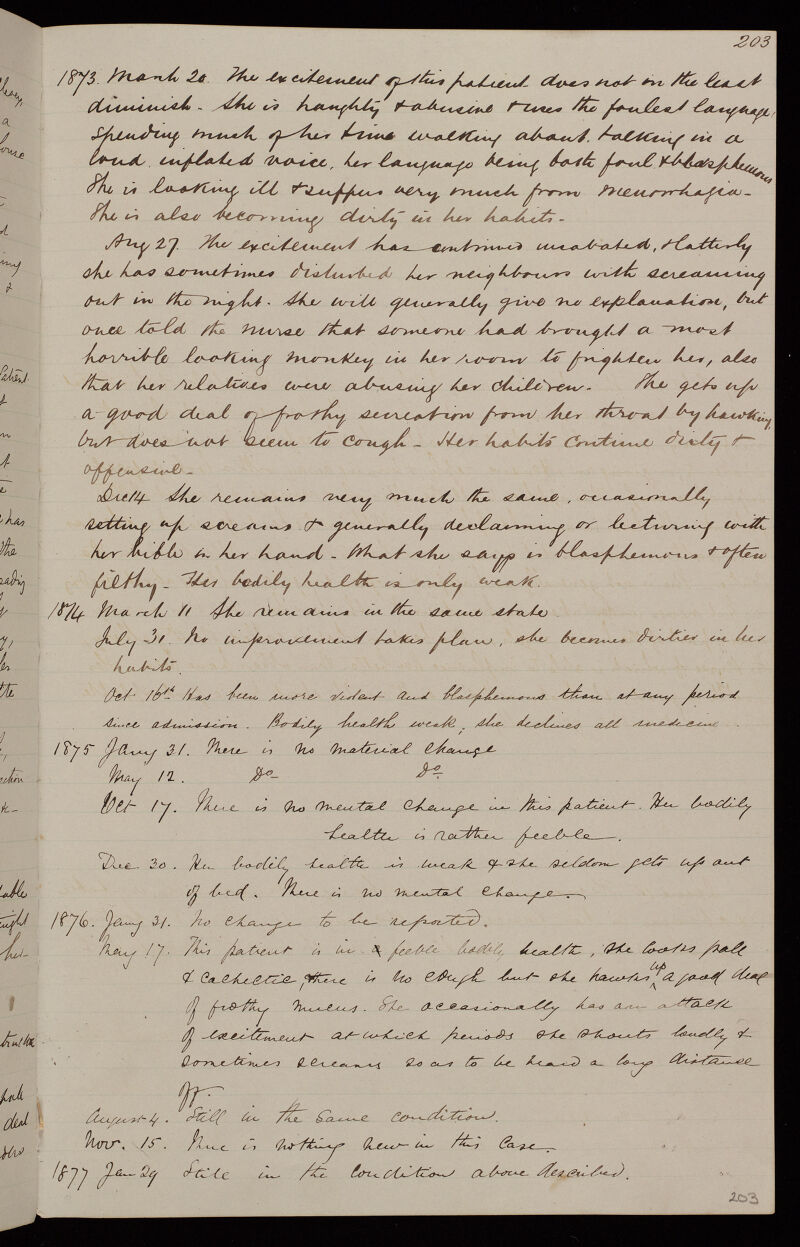 203
1873. March 20. The excitement of this patient does not in the least
diminish - She is haughty & abusive & uses the foulest language,
spending much of her time walking about, talking in a
loud inflated voice, her language being both foul & blasphemous
She is looking ill & suffers very much from Menorrhagia -
She is also becoming dirty in her habits -
Aug 27. The excitement has continued unabated, & latterly
she has sometimes disturbed her neighbours with screaming
out in the night. She will generally give no explanation, but
once told the nurse that someone had brought a most
horrible looking monkey in her room to frighten her, also
that her relatives were abusing her children. She gets up
a good deal of frothy secreation from her throat by hawking,
but does not seem to cough - Her habits continue dirty &
offensive -
Dec 14 She remains very much the same, occasionally
setting up screams & generally declaiming or lecturing with
her bible in her hand - What she says is blasphemous & often
filthy - Her bodily health is only weak.
1874 March 11 She remains in the same state
July 31. No improvement takes place, she becomes dirtier in her
habits.
Oct 16th Has been more violent and blasphemous than at any period
since admission. Bodily health weak; she declines all medicine.
1875 Jany 31. There is no material change
May 12. Do- Do-
Oct 17. There is no mental change in this patient. Her bodily
health is rather feeble.
Dec 30. Her bodily health is weak & she seldom gets up out
of bed. There is no mental change.
1876. Jany 31. No change to be reported.
May 17. This patient is in feeble bodily health, she looks pale
& cachectic, there is no cough but she hawks up a good deal
of frothy mucus. She occasionally has an attack
of excitement at which periods she shouts loudly &
sometimes screams so as to be heard a long distance
off.
August 4. Still in the same condition.
Nov. 15. There is nothing new in this case.
1877 Jan 29 Still in the condition above described.
203